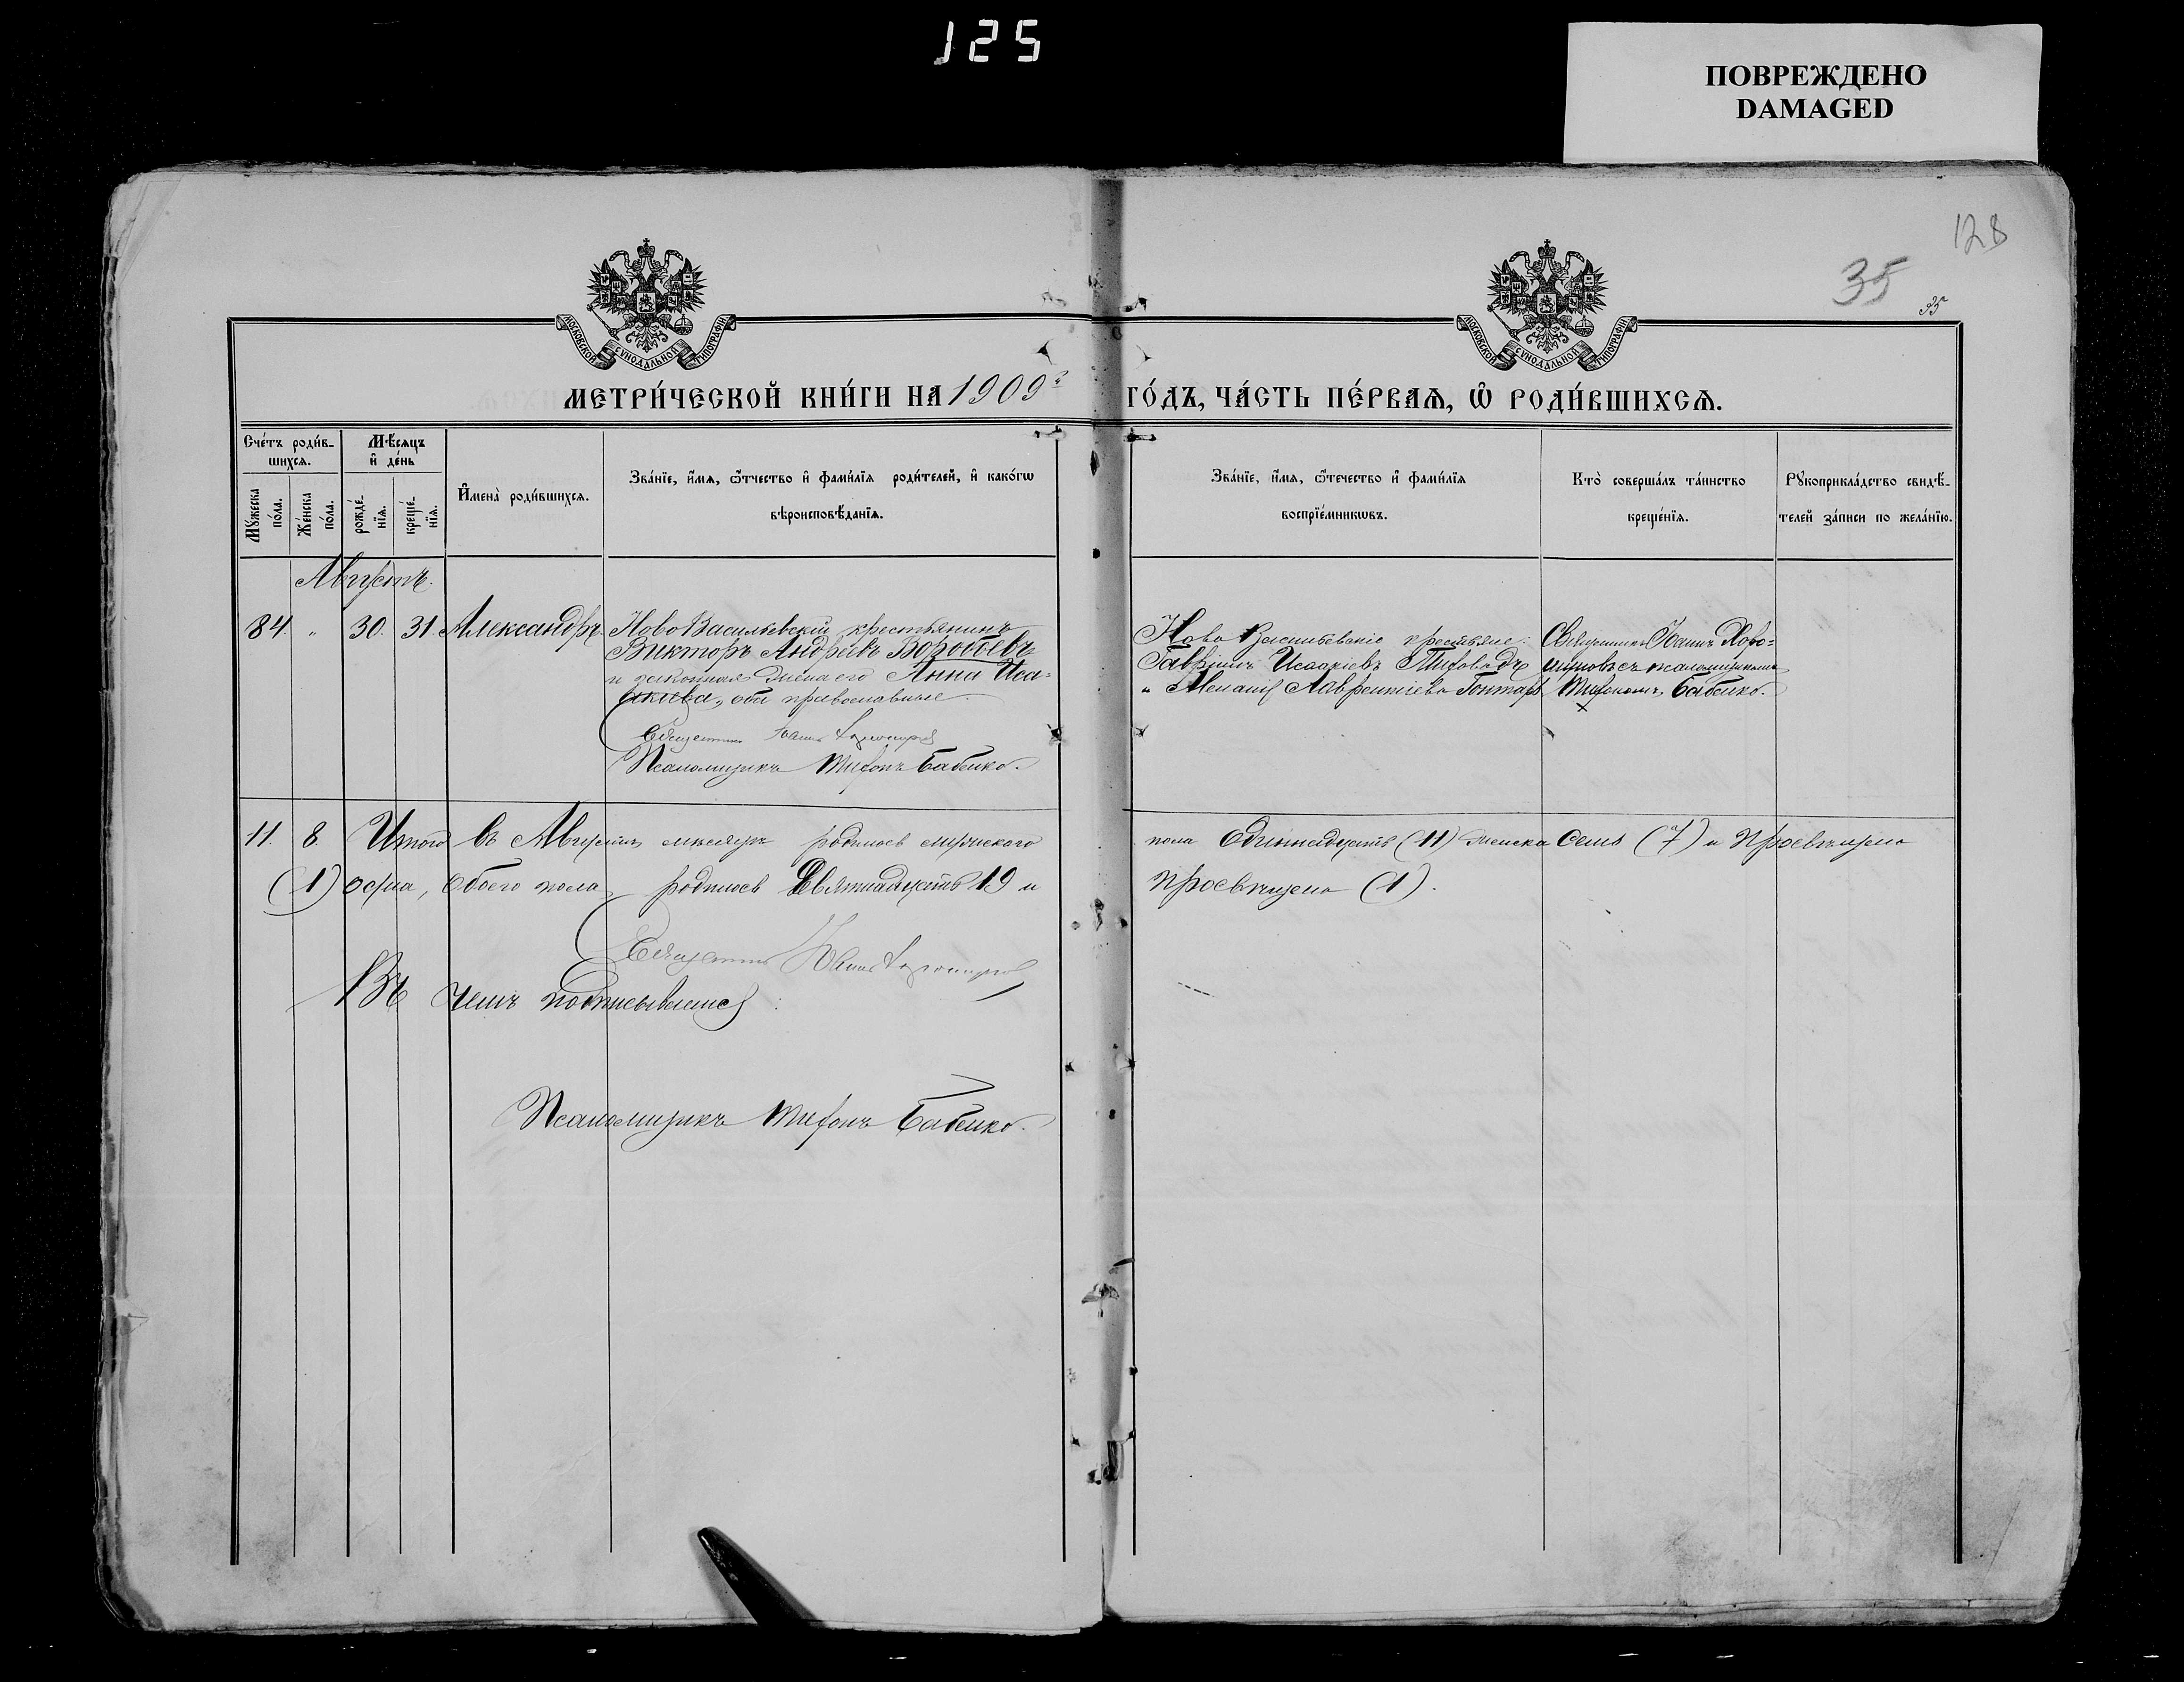 125
ПОВРЕЖДЕНО
DAMAGED
128
35
35
МОСКОВСКОЙ СѴНОДАЛЬНОЙ ТИПОГРАФІИ
МОСКОВСКОЙ СѴНОДАЛЬНОЙ ТИПОГРАФІИ
МЕТРИ́ЧЕСКОЙ КНИ́ГИ НА 1909 ГО́ДЪ, ЧА́СТЬ ПЕ́РВАѦ, Ѡ РОДИ́ВШИХСѦ.
Сче́тъ роди́в-
шихсѧ.
Мѣ́сѧцъ
и҆ де́нь
Мꙋ́жеска
по́ла.
Же́нска
по́ла.
рожде́-
нїѧ.
креще́-
нїѧ.
И҆мена̀ роди́вшихсѧ.
Зва́нїе, и҆́мѧ, ѻ҆́тчество и҆ фами́лїѧ роди́телей, и҆ како́гѡ
вѣроисповѣ́данїѧ.
Зва́нїе, и҆́мѧ, ѻ҆те́чество и҆ фами́лїѧ
воспрїе́мникѡвъ.
Кто̀ соверша́лъ та́инство
креще́нїѧ.
Рꙋкоприкла́дство свидѣ́-
телей за́писи по жела́нїю.
Августъ.
84. " 30. 31. Александръ.
Ново Васильевскій крестьянинъ
Викторъ Андреевъ Воробьевъ
и законная жена его Анна Иса-
акиева, оба православные.
Священникъ Іоаннъ
Псаломщикъ Тихонъ Бабенко.
Ново Васильевскіе крестьяне:
Гавріилъ Исаакіевъ
" Меланія Лаврентіева Гонтарь
Священникъ Іоаннъ Хоро-
съ псаломщикомъ
Тихономъ Бабенко.
11. 8. Итого въ Августѣ мѣсяцѣ родилось мужского
пола одиннадцать (11) женска семь (7) и просвѣщено
(1) обоего пола родилось девятнадцать 19 и
просвѣщено (1).
Священникъ Іоаннъ
Въ чемъ подписываемся:
Псаломщикъ Тихонъ Бабенко.